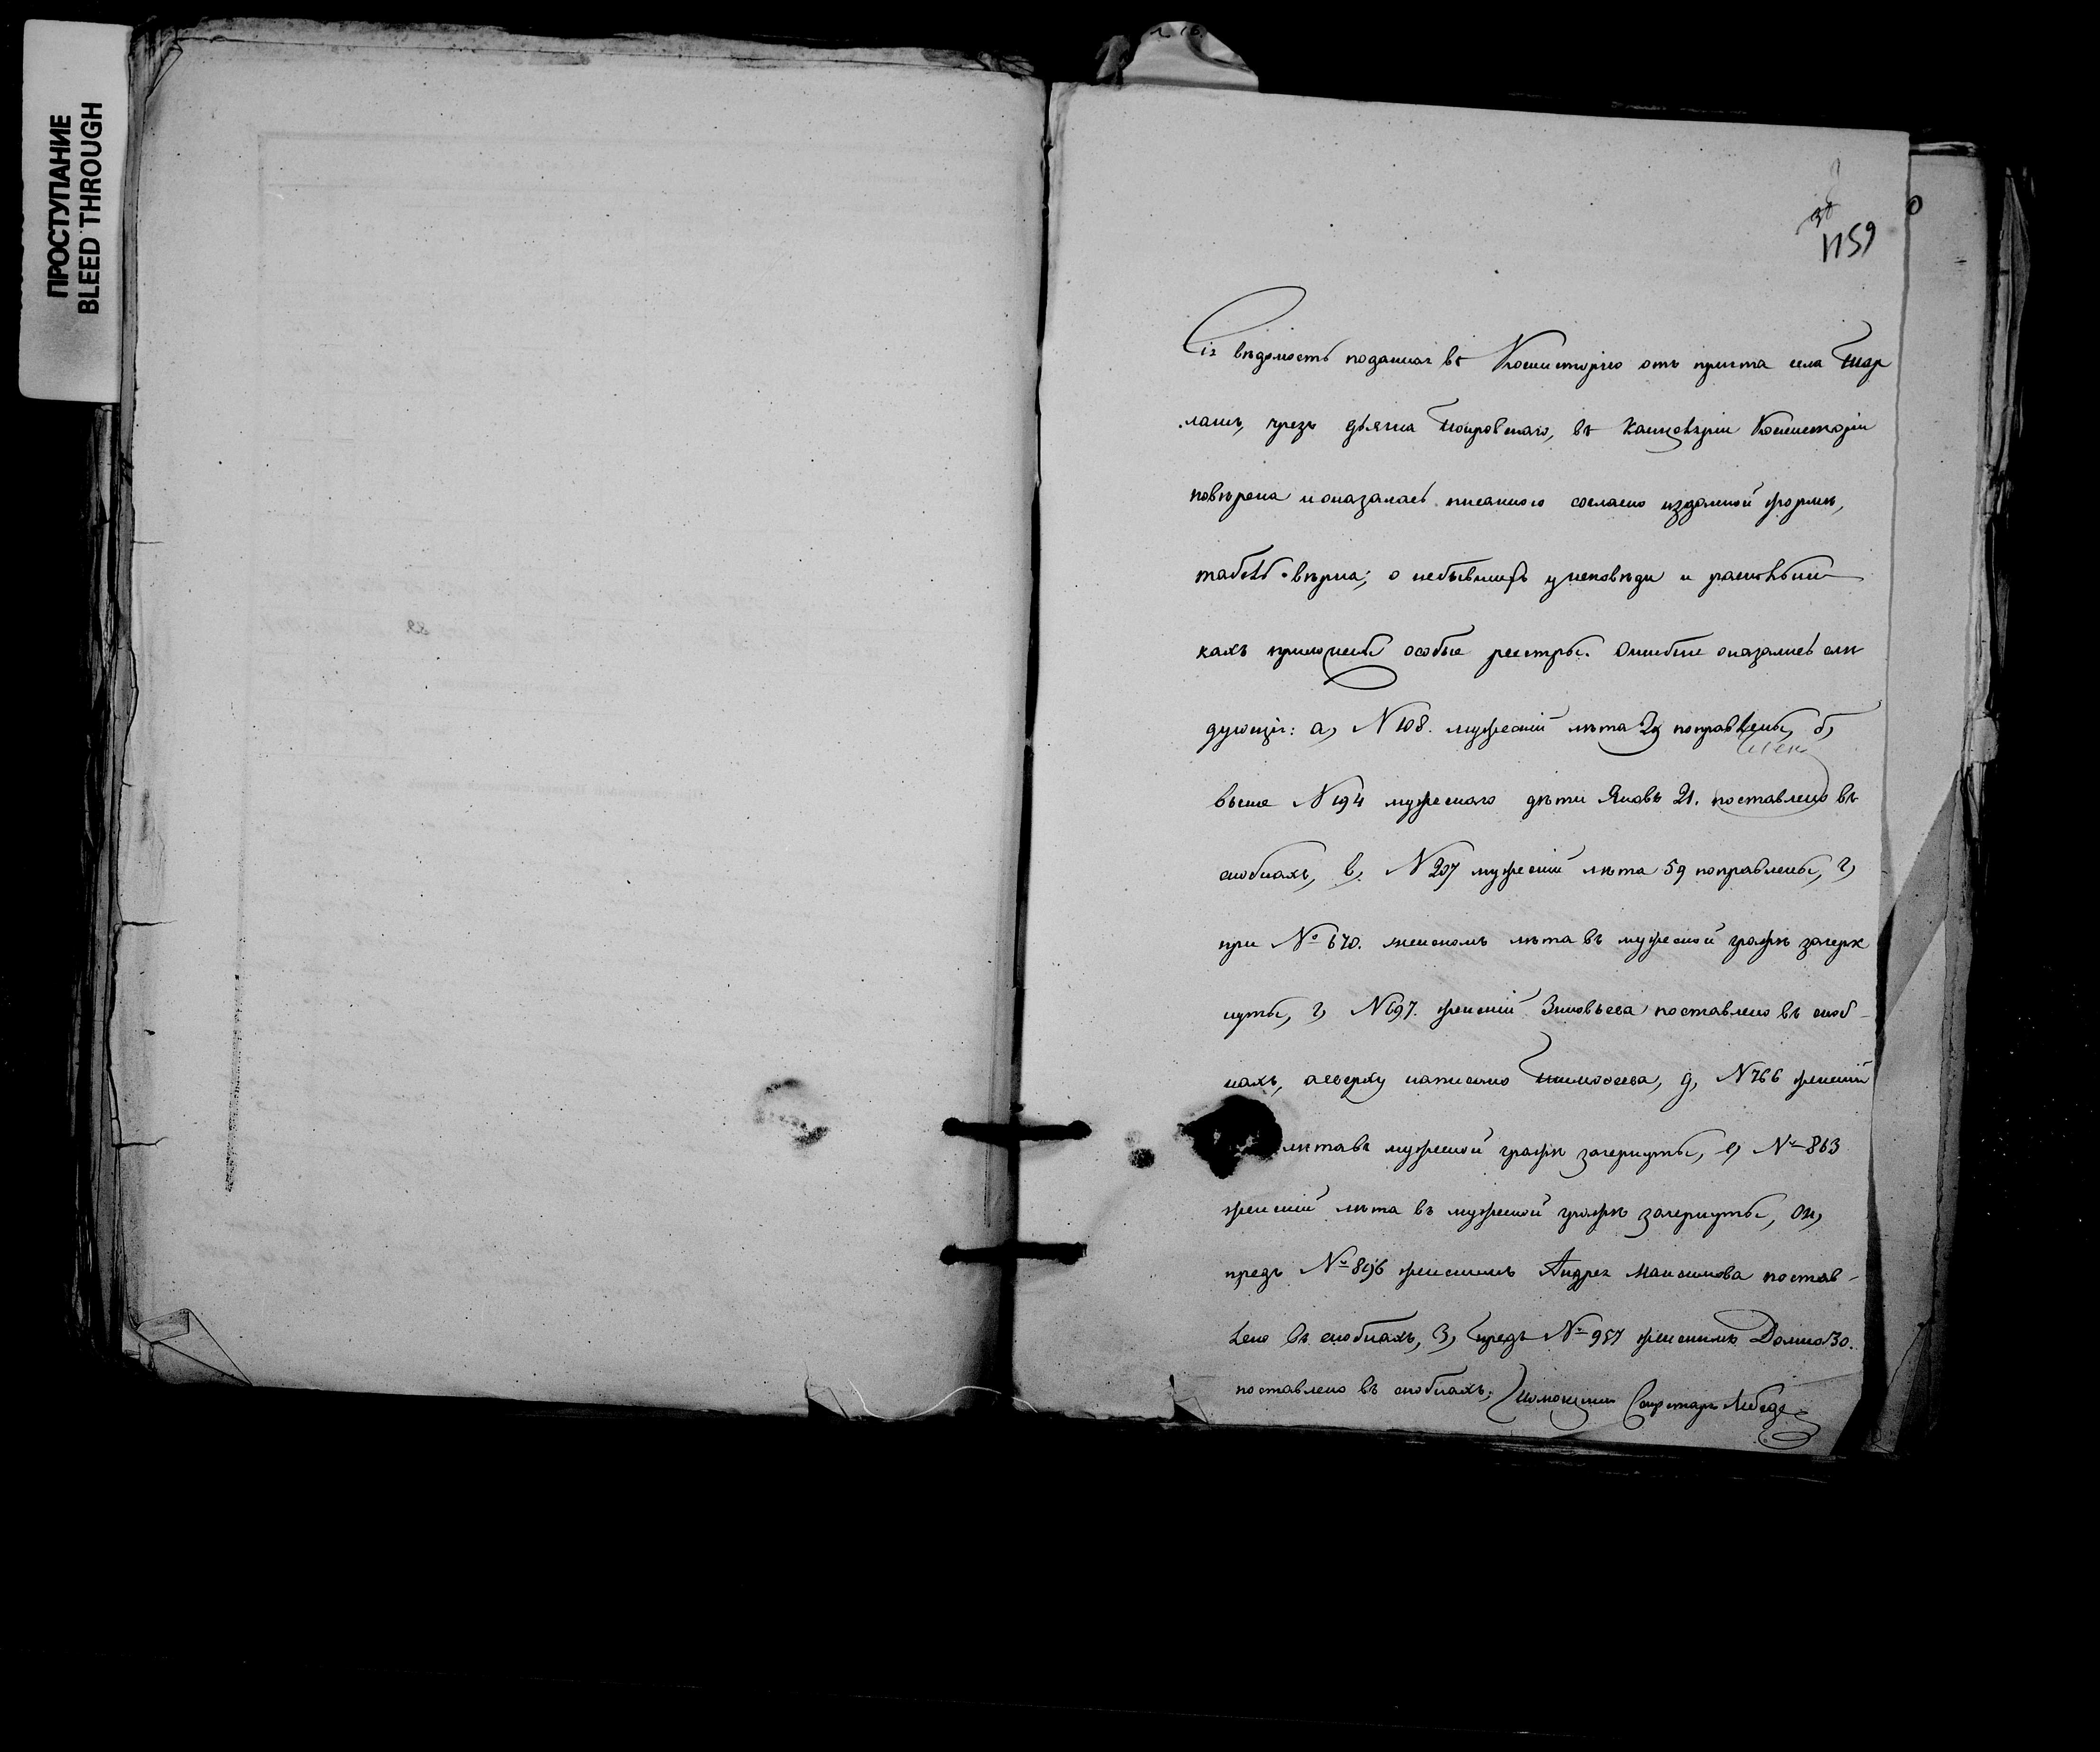 ПРОСТУПАНИЕ
BLEED THROUGH
1159
Сія вѣдомость поданная въ Консисторію отъ причта села
чрезъ дьячка Покровскаго, въ Канцеляріи Консисторіи
повѣрена и оказалась писанною согласно изданной формѣ,
табель вѣрна; о небывшихъ у исповѣди и раскольни
кахъ приложены особые реестры. Ошибки оказались слѣ
дующія: а, N 108. мужескій лѣта поправлены, б,
выше N 194 мужескаго дѣти Яковъ 21. поставлено въ
скобкахъ, в, N 207 мужескій лѣта 59 поправлены, г,
при № 670. женскомъ лѣта въ мужеской графѣ зачерк
нуты, г, N 697. женскій Зиновьева поставлено въ скоб-
кахъ, а сверху написано Тимофеева, д, N 766 женскій
лѣта въ мужеской графѣ зачеркнуты, е, № 863
женскій лѣта въ мужеской графѣ зачеркнуты, ж,
предъ № 896 женскимъ Андрея Максимова постав-
лено въ скобкахъ, З, предъ № 957 женскимъ Домна 30.
поставлено въ скобкахъ. Секретарь